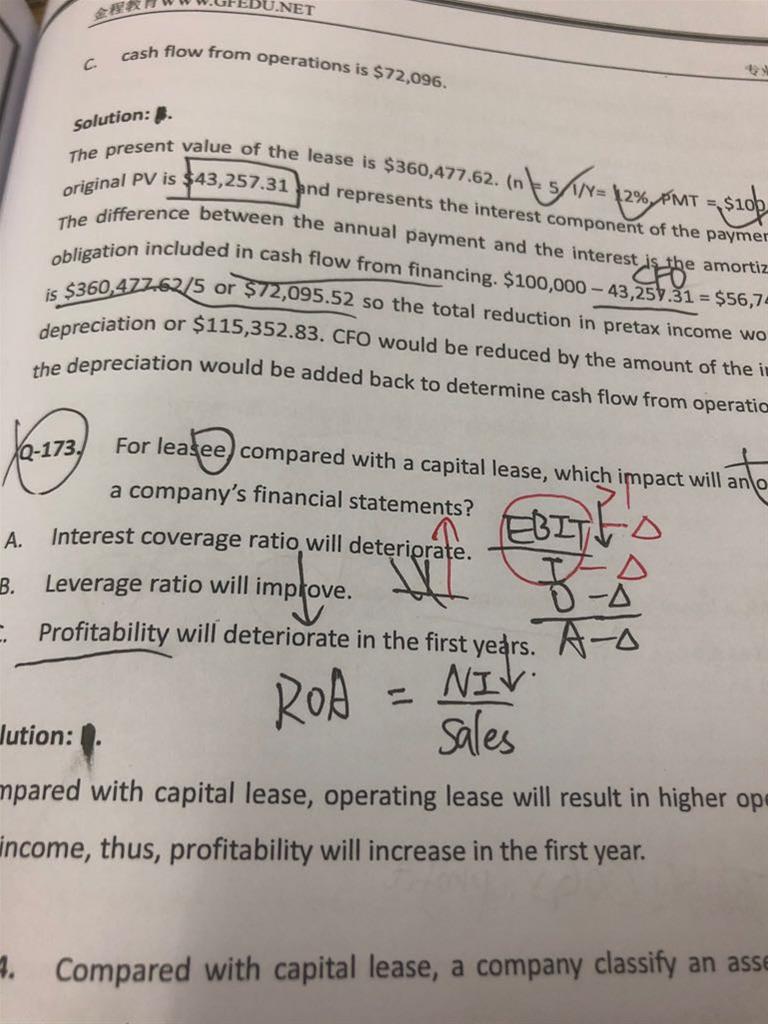 金程教育 WWW.GFEDU.NET
专业
C. cash flow from operations is $72,096.
Solution: .
The present value of the lease is $360,477.62. (n = 5, I/Y= 12%, PMT = $100,
original PV is $43,257.31 and represents the interest component of the paymen
The difference between the annual payment and the interest is the amortiz
CFO
obligation included in cash flow from financing. $100,000 – 43,257.31 = $56,74
is $360,477.62/5 or $72,095.52 so the total reduction in pretax income wo
depreciation or $115,352.83. CFO would be reduced by the amount of the in
the depreciation would be added back to determine cash flow from operatio
Q-173. For leasee, compared with a capital lease, which impact will an o
a company's financial statements?
EBIT ↓ - Δ
A. Interest coverage ratio will deteriorate.
I - Δ
B. Leverage ratio will improve.
D - Δ
C. Profitability will deteriorate in the first years.
A - Δ
ROA = NI↓
Sales
lution: .
mpared with capital lease, operating lease will result in higher ope
income, thus, profitability will increase in the first year.
4. Compared with capital lease, a company classify an asse